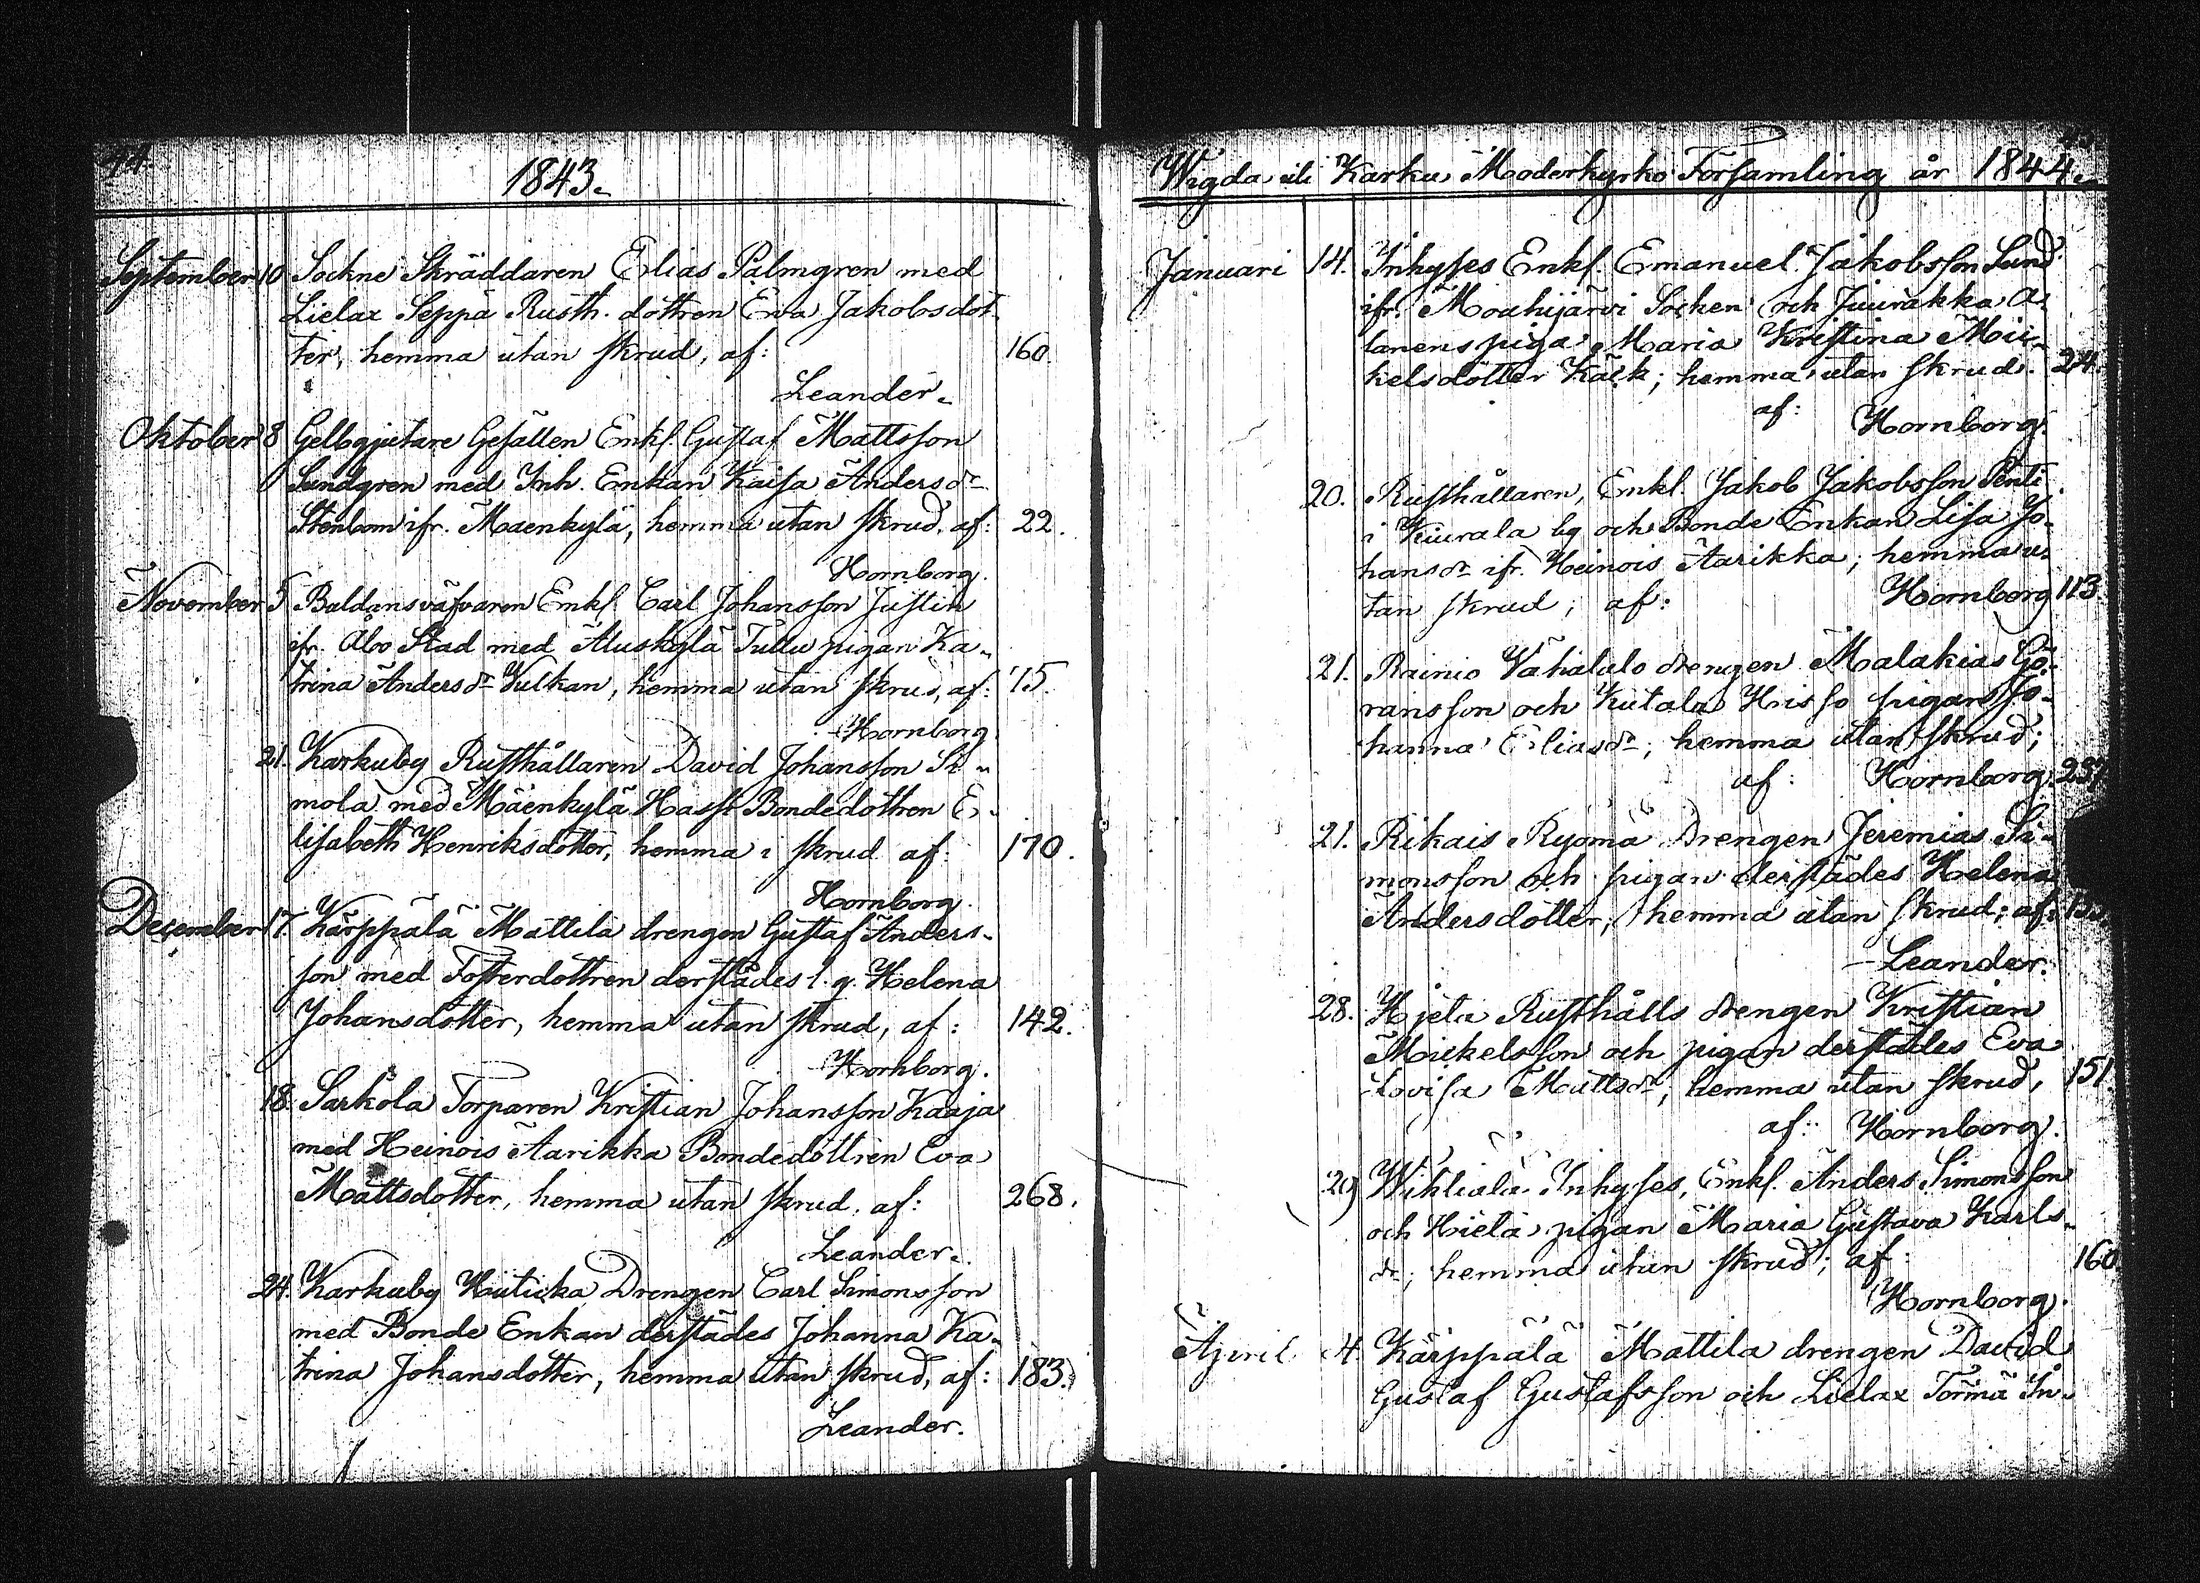 44.
1843.
September 10 Sockne Skräddaren Erlias Palmgren med
Lielax Seppä Rusth. dottren Eva Jakobsdot-
ter, hemma utan skrud, af: 160.
Leander.
Oktober 8 Gelbgjutare Gesällen Enkl. Gustaf Mattsson
Sundgren med Inh. Enkan Kaisa Andersdr
Stenbom ifr. Maenkylä, hemma utan skrud, af: 22.
Hornborg.
November 5 Baldansväfvaren Enkl. Carl Johansson Justin
ifr. Åbo Stad med Aluskylä Tullu pigan Ka-
trina Andersdr Vulkan, hemma utan skrud, af: 15.
Hornborg
21. Karkuby Rusthållaren David Johansson Si-
mola med Mäenkylä Hassi Bondedottren E-
lisabeth Henriksdotter, hemma i skrud af: 170.
Hornborg.
December 17. Kärppälä Mattila drengen Gustaf Anders-
son med Fosterdottren derstädes l. g. Helena
Johansdotter, hemma utan skrud, af: 142.
Hornborg.
18. Sarkola Torparen Kristian Johansson Kaaja
med Heinois Aarikka Bondedottren Eva
Mattsdotter, hemma utan skrud. af: 268.
Leander.
24. Karkuby Hiuticka Drengen Carl Simonsson
med Bonde Enkan derstädes Johanna Ka-
trina Johansdotter, hemma utan skrud, af: 183.
Leander.
Wigda uti Karku Moderkyrko Församling år 1844.
Januari 14. Inhyses Enkl. Emanuel Jakobsson Sund
ifr. Mouhijärvi Socken och Juurakka A-
lanens piga Maria Kristina Mic-
kelsdotter Käck; hemma utan skrud. 24.
af: Hornborg.
20. Rusthållaren, Enkl. Jakob Jakobsson Penti
i Kiurala by och Bonde Enkan Lisa Jo-
hansdr ifr. Heinois Aarikka; hemma u-
tan skrud; af: Hornborg 113.
21. Rainio Vähätalo drengen Malakias Gö-
ransson och Kutala Hisso pigan Jo-
hanna Eliasdr; hemma utan skrud;
af: Hornborg.
21. Rikais Ryömä Drengen Jeremias Si-
monsson och pigan derstädes Helena
Andersdotter, hemma utan skrud; af:
Leander.
28. Hjela Rusthålls drengen Kristian
Mickelsson och pigan derstädes Eva
Lovisa Mattsdr, hemma utan skrud, 151
af: Hornborg.
29 Inhyses, Enkl. Anders Simonsson
och Hiela pigan Maria Gustava Karls-
dr; hemma utan skrud; af: 160
Hornborg.
April 4. Kärppälä Mattila drengen David
Gustaf Gustafsson och Lielax Törmä In-